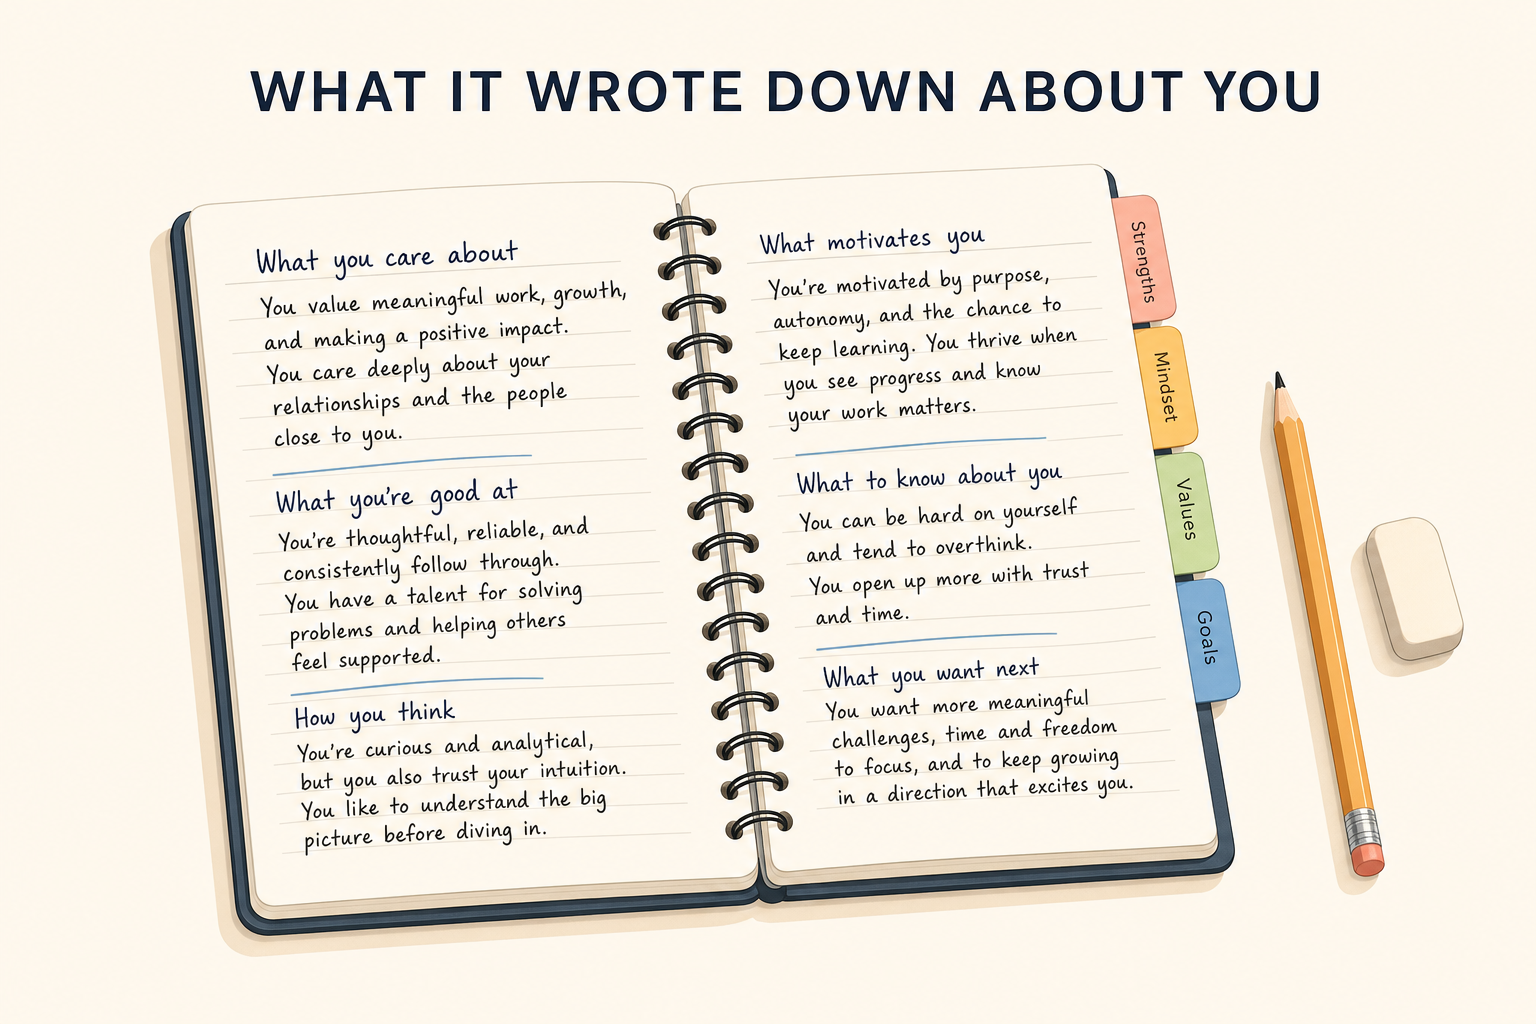 WHAT IT WROTE DOWN ABOUT YOU
What you care about
You value meaningful work, growth,
and making a positive impact.
You care deeply about your
relationships and the people
close to you.
What you're good at
You're thoughtful, reliable, and
consistently follow through.
You have a talent for solving
problems and helping others
feel supported.
How you think
You're curious and analytical,
but you also trust your intuition.
You like to understand the big
picture before diving in.
What motivates you
You're motivated by purpose,
autonomy, and the chance to
keep learning. You thrive when
you see progress and know
your work matters.
What to know about you
You can be hard on yourself
and tend to overthink.
You open up more with trust
and time.
What you want next
You want more meaningful
challenges, time and freedom
to focus, and to keep growing
in a direction that excites you.
Strengths
Mindset
Values
Goals